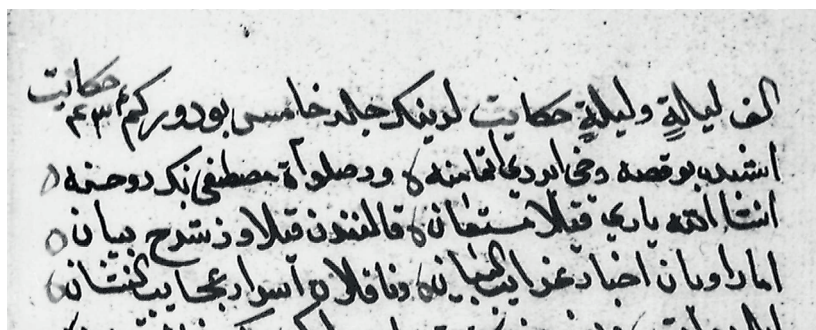 الف ليلةٍ وليلةٍ حكايت لرينكر جلد خامسى بودوركم ٤٣٤ حكايت
اشبدن بو قصه دخى ايردى اتمامنه وردصلواة مصطفى نك روحنه
انشاالله يارى قيلا مستعان قالمنندن قيلاوز شرح بيان
اما راويان اخبار غرايب البيان وناقلان اسرار عجايب النشان